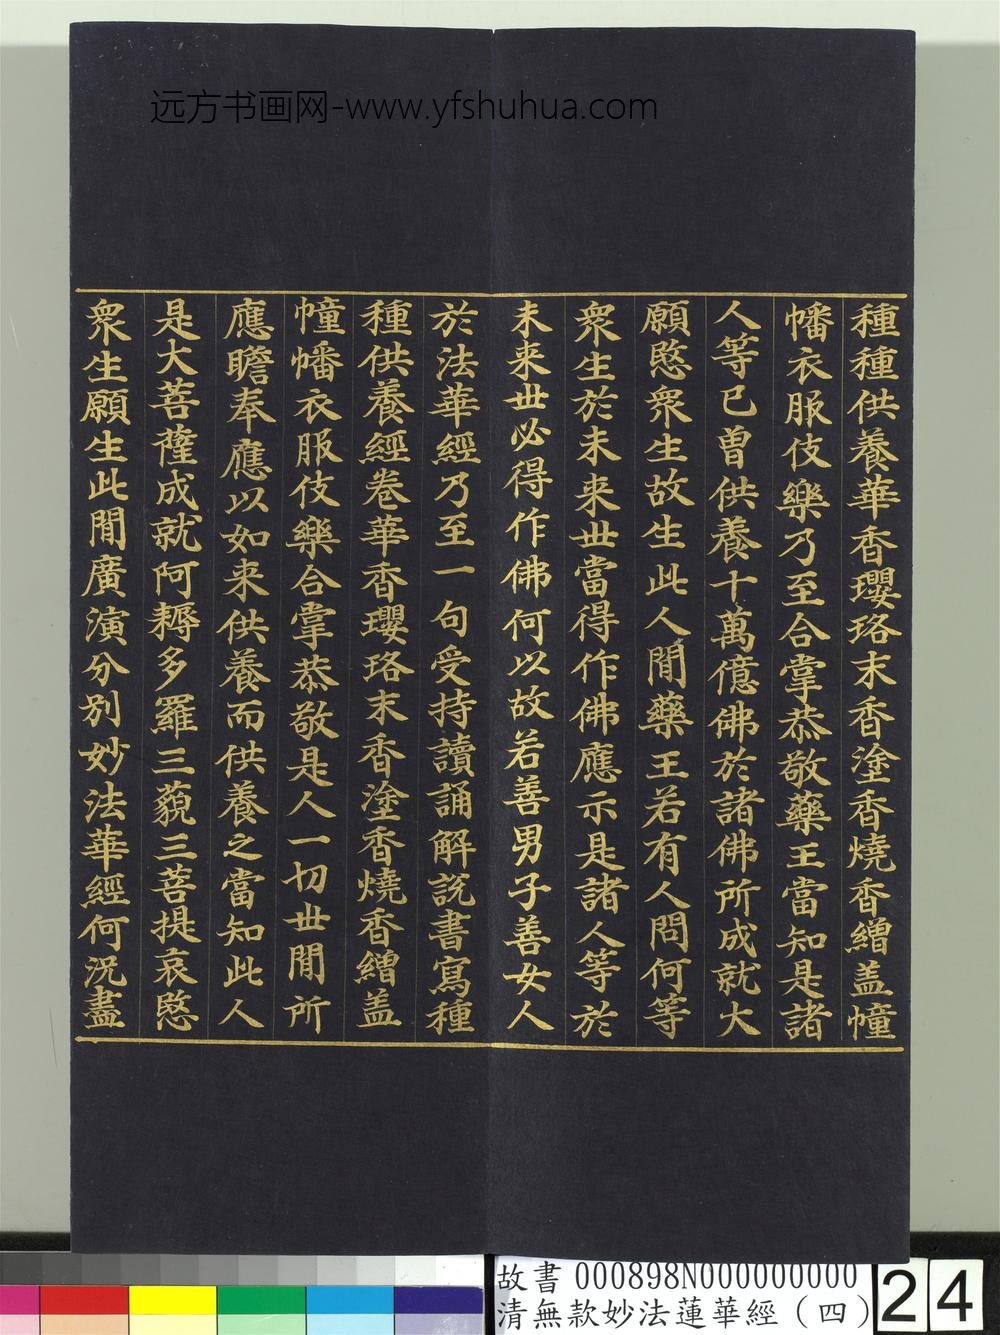 远方书画网-www.yfshuhua.com
種種供養華香瓔珞末香塗香燒香繒盖幢
幡衣服伎樂乃至合掌恭敬藥王當知是諸
人等已曾供養十萬億佛於諸佛所成就大
願愍衆生故生此人間藥王若有人問何等
衆生於未来世當得作佛應示是諸人等於
未来世必得作佛何以故若善男子善女人
於法華經乃至一句受持讀誦解說書寫種
種供養經卷華香瓔珞末香塗香燒香繒盖
幢幡衣服伎樂合掌恭敬是人一切世間所
應瞻奉應以如来供養而供養之當知此人
是大菩薩成就阿耨多羅三藐三菩提哀愍
衆生願生此間廣演分别妙法華經何況盡
故書 000898N000000000
清無款妙法蓮華經（四）
24